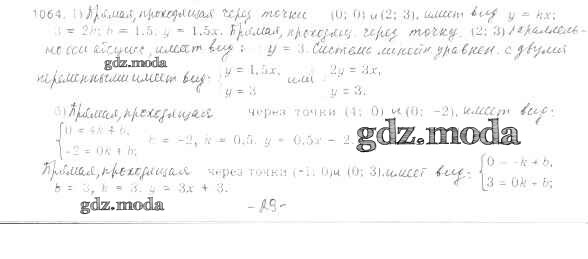 1064. 1) Прямая, проходящая через точки (0; 0) и (2; 3), имеет вид y = kx;
3 = 2k; k = 1,5; y = 1,5x. Прямая, проходящ. через точку (2; 3) параллель-
но оси абсцисс, имеет вид: y = 3. Система линейн уравнен. с двумя
gdz.moda
переменными имеет вид: { y = 1,5x, y = 3 или { 2y = 3x, y = 3.
б) Прямая, проходящая через точки (4; 0) и (0; −2), имеет вид:
{ 0 = 4k + b, −2 = 0k + b; k = −2, k = 0,5. y = 0,5x − 2.
gdz.moda
Прямая, проходящая через точки (−1; 0) и (0; 3), имеет вид: { 0 = −k + b, 3 = 0k + b;
b = 3, k = 3. y = 3x + 3.
gdz.moda
- 29 -